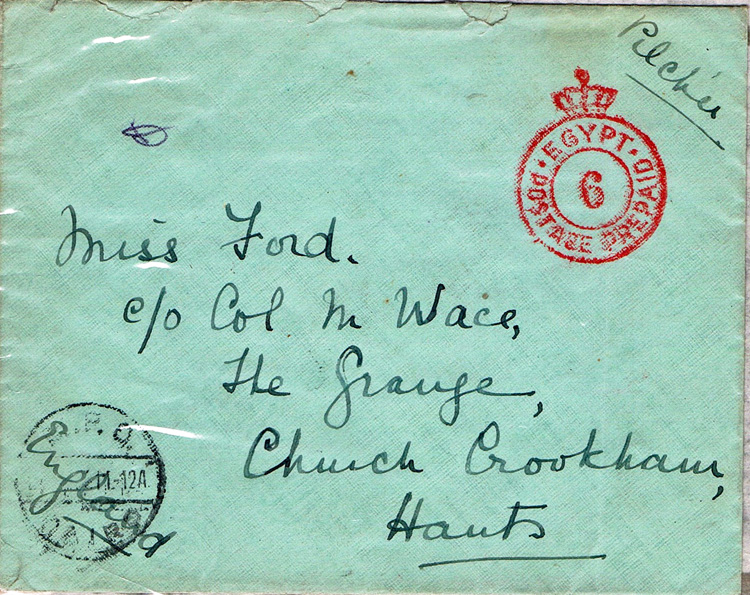 Pilcher
EGYPT
POSTAGE PREPAID
6
Miss Ford.
c/o Col M Wace,
The Grange,
Church Crookham,
Hants
England
.P.O.
11-12A